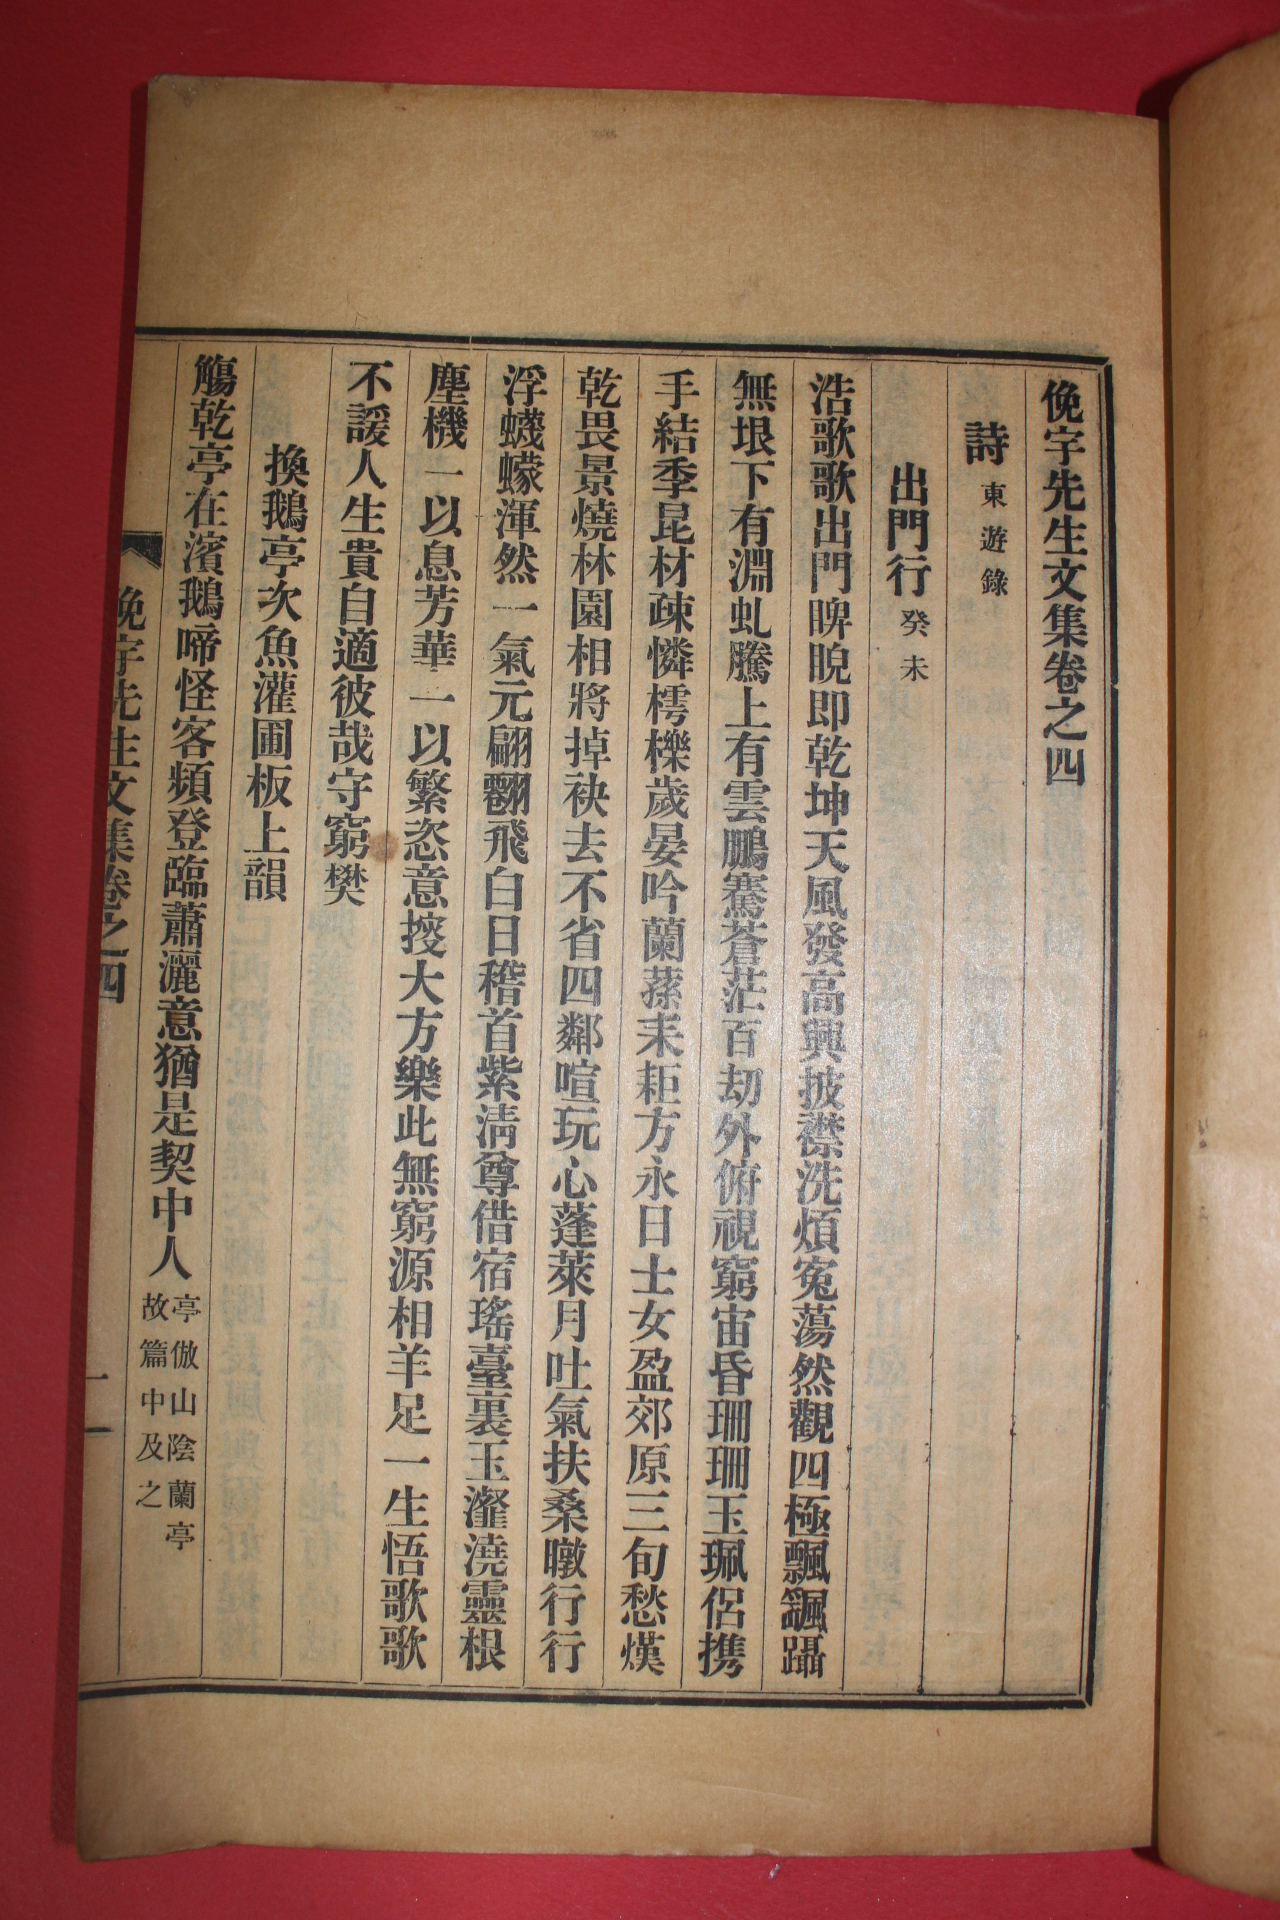 俛宇先生文集卷之四
詩 東遊錄
出門行 癸未
浩歌歌出門睥睨即乾坤天風發高興披襟洗煩寃蕩然觀四極飄颻躡
無垠下有淵虬騰上有雲鵬騫蒼茫百劫外俯視窮宙昏珊珊玉珮侶携
手結季昆材疎憐樗櫟歲晏吟蘭蓀耒耟方永日士女盈郊原三旬愁熯
乾畏景燒林園相將掉袂去不省四鄰喧玩心蓬萊月吐氣扶桑暾行行
浮蠛蠓渾然一氣元翩翾飛白日稽首紫淸尊借宿瑤臺裏玉瀣澆靈根
塵機一以息芳華一以繁恣意挼大方樂此無窮源相羊足一生悟歌歌
不諼人生貴自適彼哉守窮樊
換鵝亭次魚灌圃板上韻
觴乾亭在濱鵝啼怪客頻登臨蕭灑意猶是契中人 亭倣山陰蘭亭
故篇中及之
俛宇先生文集卷之四
一